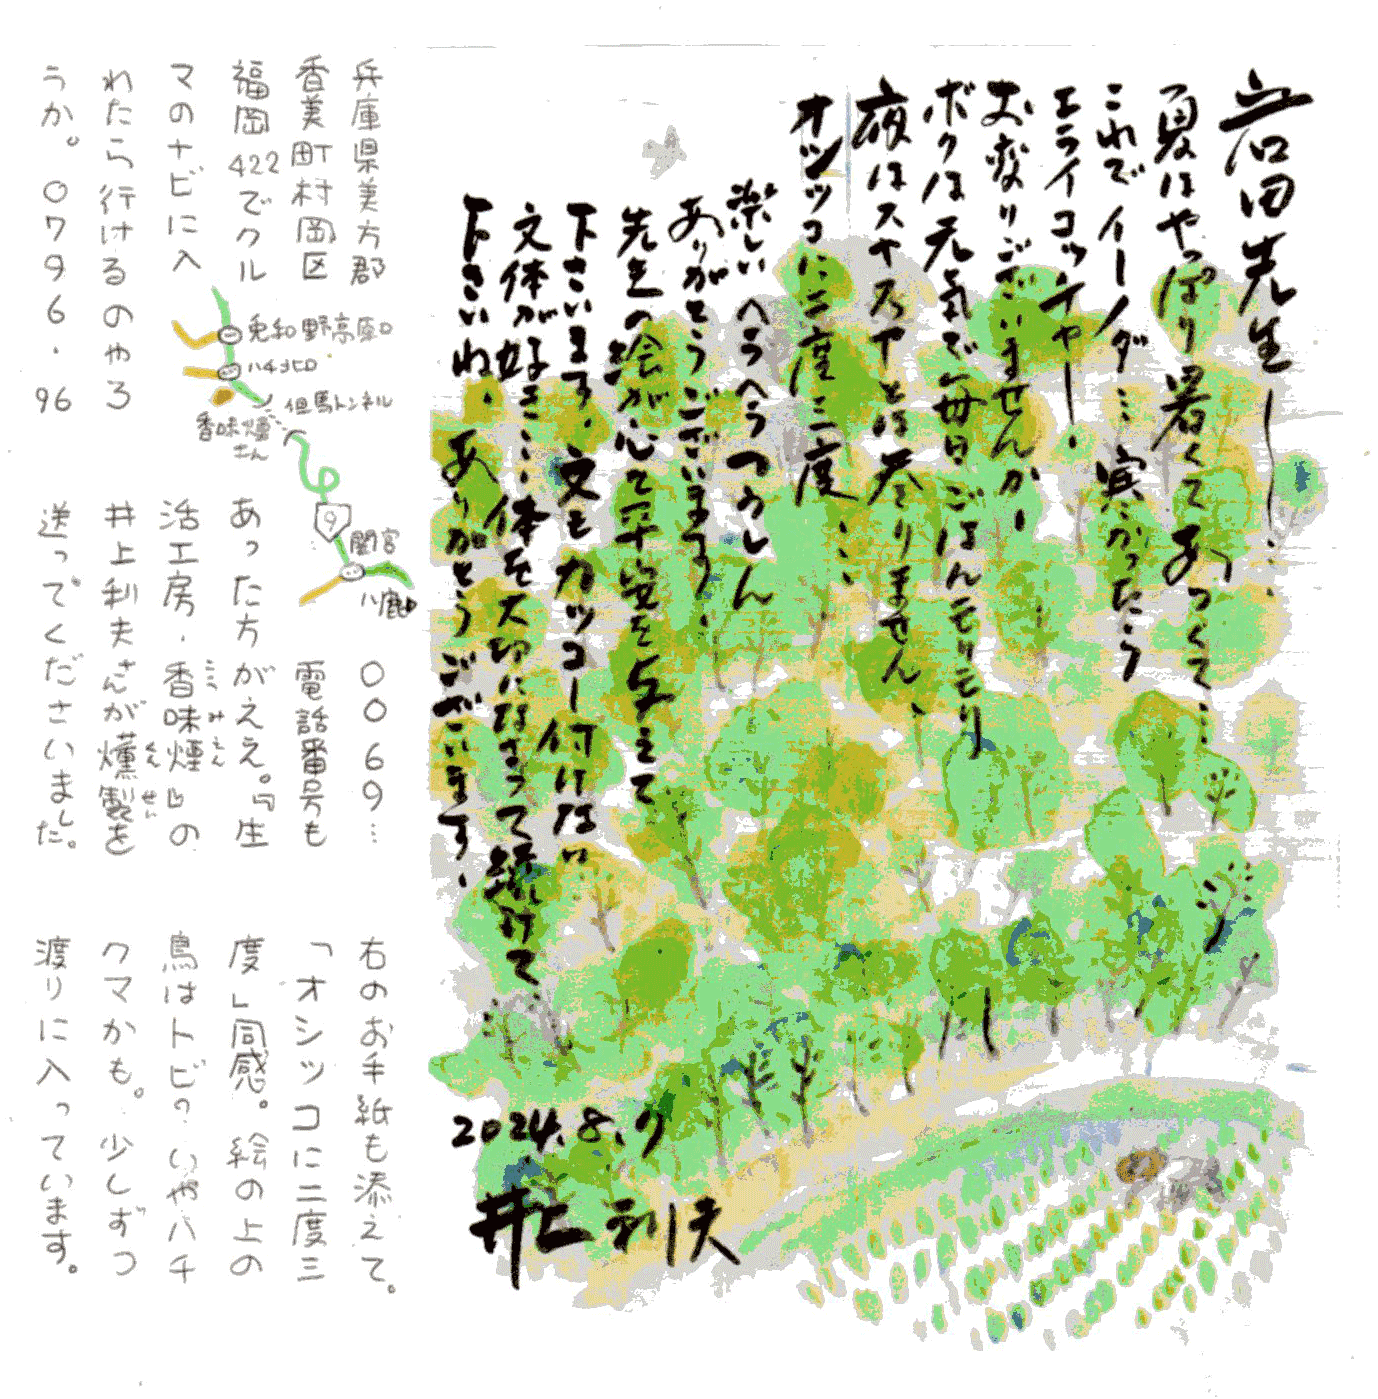 岩田先生―…
夏はやっぱり暑くてあつくて…
これでイーノダ…寒かったら
エライコッチャー・
お変りございませんかー
ボクは元気で毎日ごはんモリモリ
夜はスヤスヤとは参りません、
オシッコに二度三度……
楽しいヘラヘラつうしん
ありがとうございます、
先生の絵が心て平安を与えて
下さいます、文もカッコー付けない
文体が好き…体を大切になさって続けて
下さいね、ありがとうございます、
2024.8.9
井上利夫
右のお手紙も添えて。
「オシッコに二度三
度」同感。絵の上の
鳥はトビ?いやハチ
クマかも。少しずつ
渡りに入っています。
あった方がええ。『生
活工房・香味煙』の
こうみえん
井上利夫さんが燻製を
くんせい
送ってくださいました。
兵庫県美方郡
香美町村岡区
福岡422でクル
マのナビに入
れたら行けるのやろ
うか。0796・96
0069…
電話番号も
兎和野高原口
ハチ北口
但馬トンネル
香味煙
さん
9
関宮
八鹿